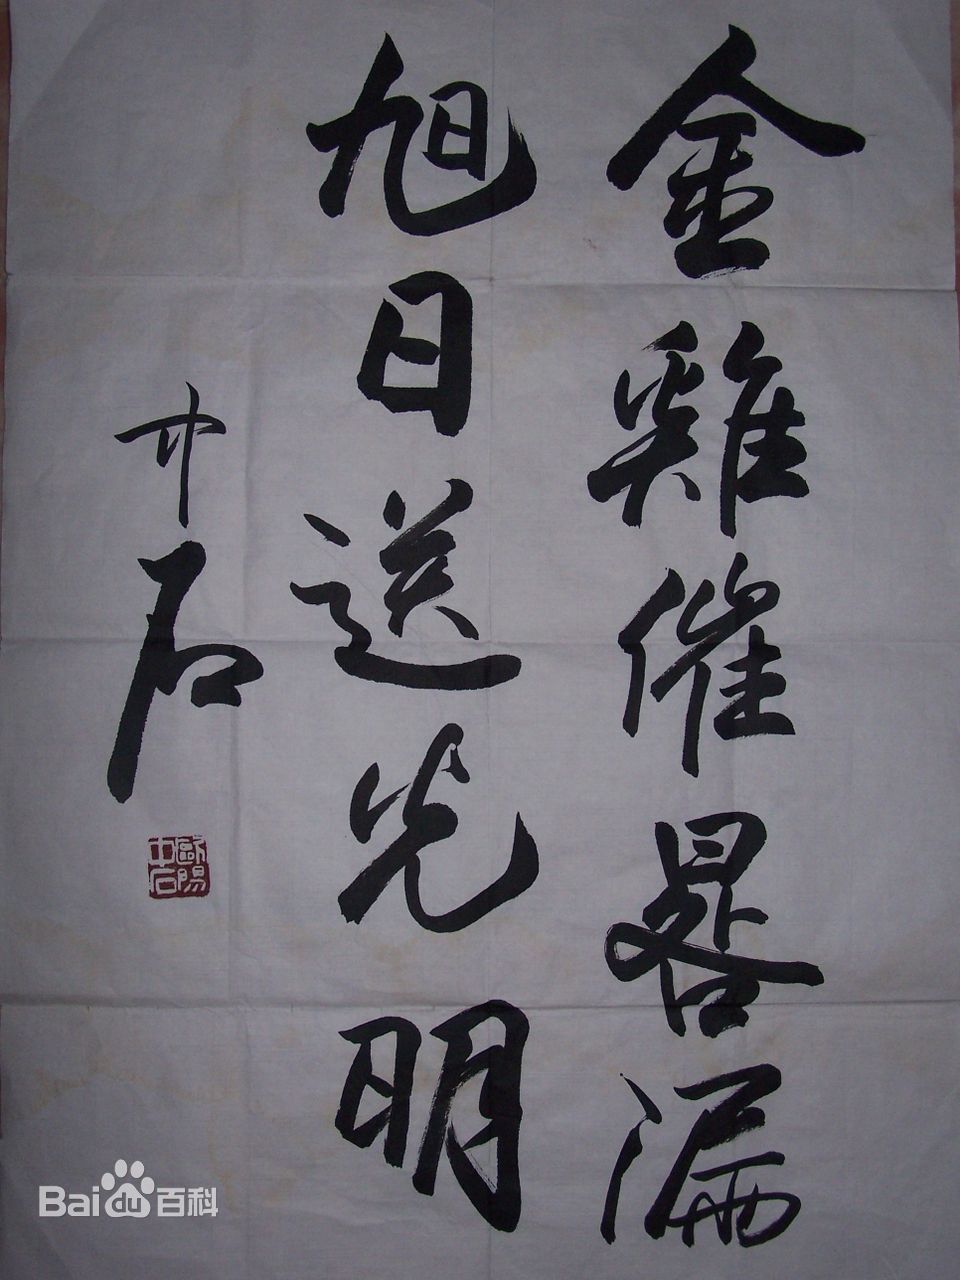 金雞催晷漏
旭日送光明
中石
歐陽中石
Baidu百科